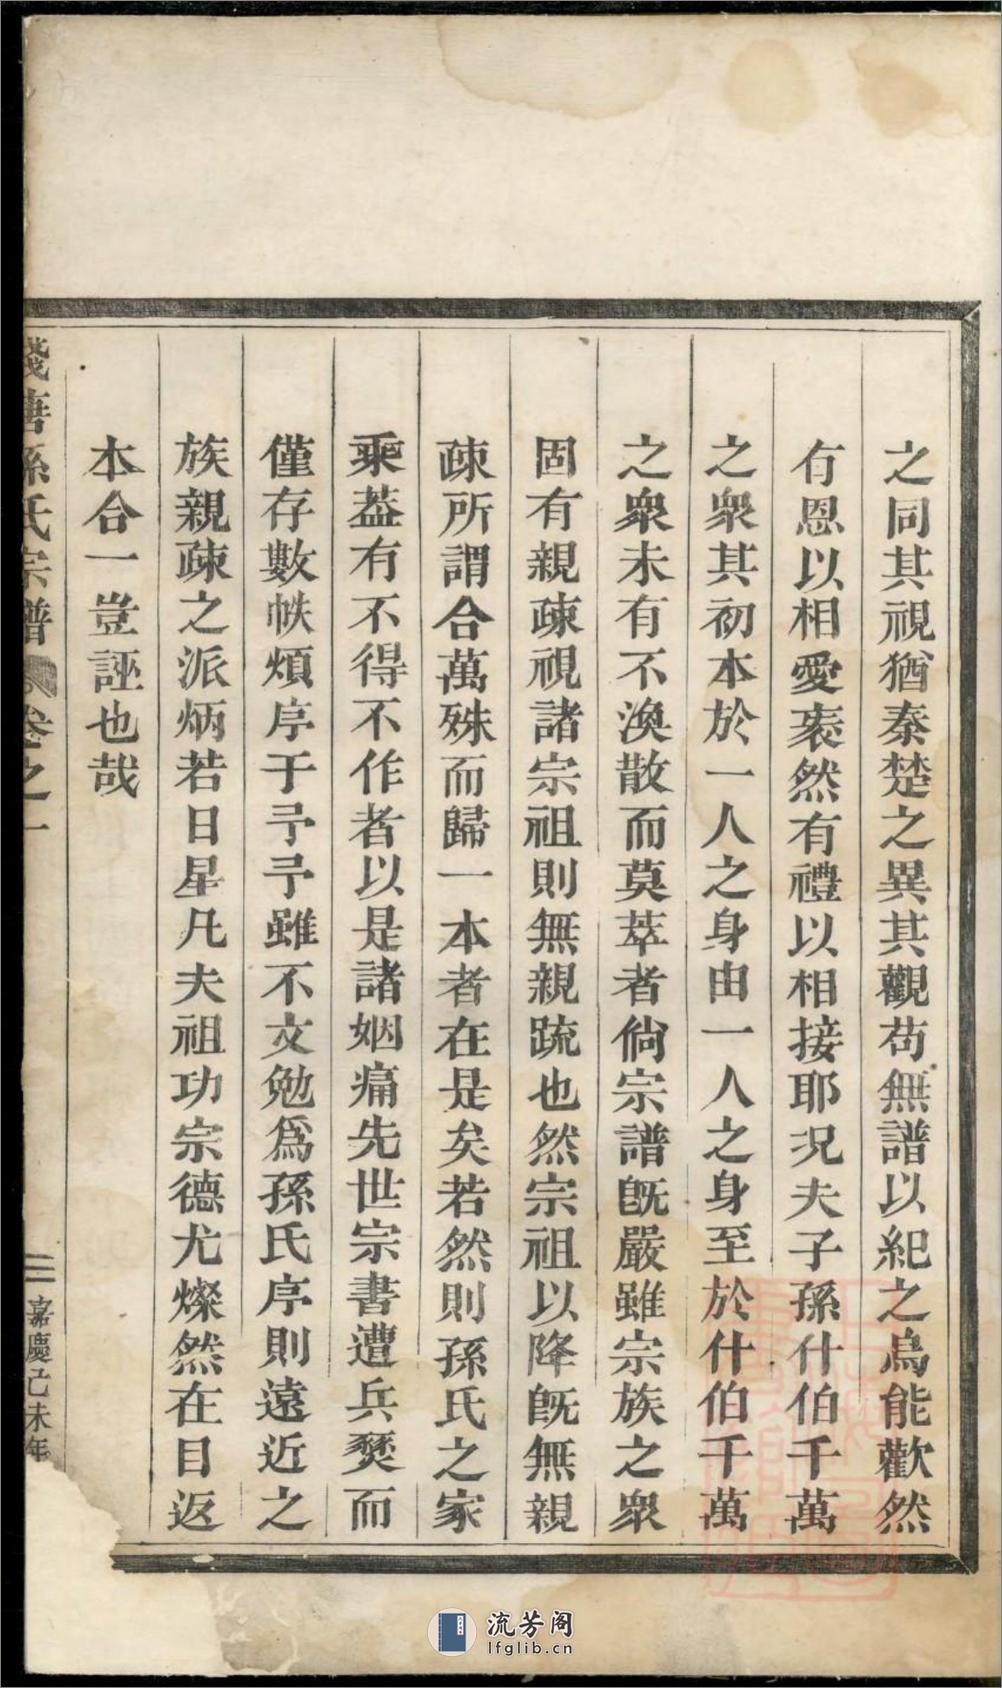 之同其視猶秦楚之異其觀苟無譜以紀之烏能歡然
有恩以相愛裒然有禮以相接耶况夫子孫什伯千萬
之衆其初本於一人之身由一人之身至於什伯千萬
之衆未有不渙散而莫萃者倘宗譜旣嚴雖宗族之衆
固有親疎視諸宗祖則無親疏也然宗祖以降旣無親
疎所謂合萬殊而歸一本者在是矣若然則孫氏之家
乘葢有不得不作者以是諸姻痛先世宗書遭兵燹而
僅存數帙煩序于予予雖不文勉爲孫氏序則遠近之
族親疎之派炳若日星凡夫祖功宗德尤燦然在目返
本合一豈誣也哉
錢唐孫氏宗譜 卷之一
二 嘉慶己未年
流芳阁
lfglib.cn